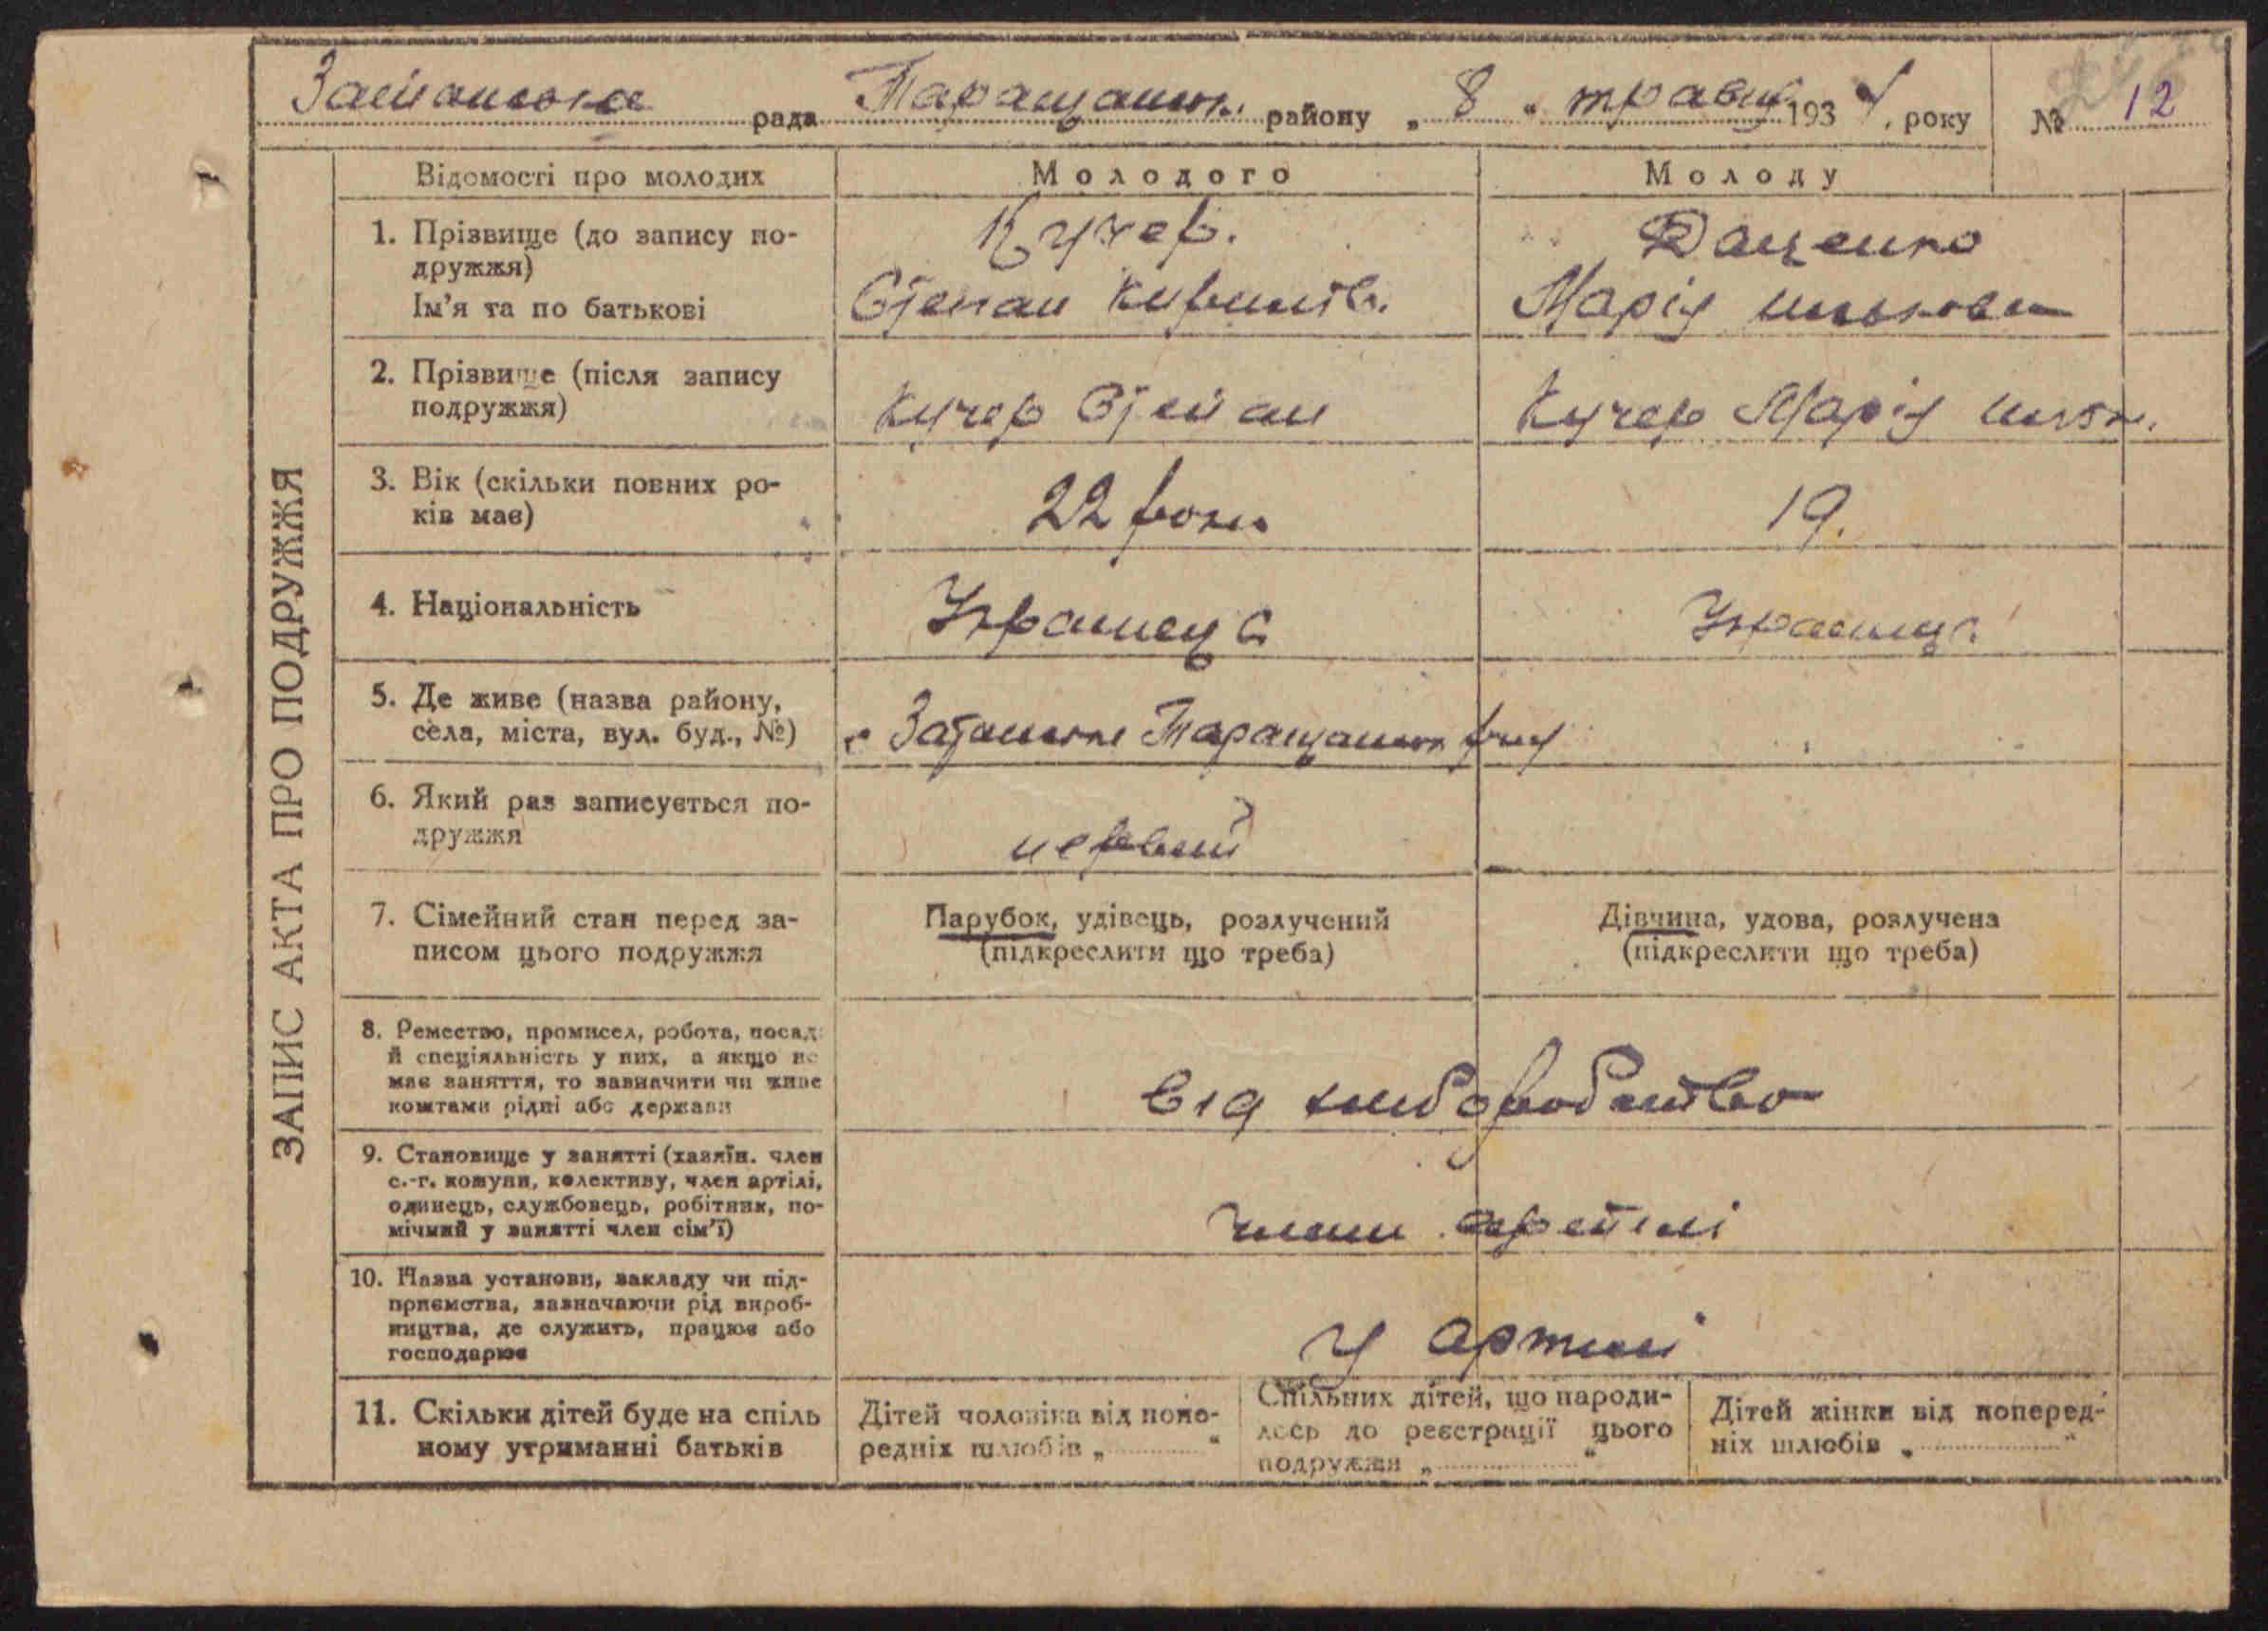 рада Таращанськ. району „ 8 “ травня 1934, року № 12
ЗАПИС АКТА ПРО ПОДРУЖЖЯ
Відомості про молодих Молодого Молоду
1. Прізвище (до запису по-
дружжя)
Кучер. Даценко
Ім'я та по батькові Степан Марія
2. Прізвище (після запису
подружжя)
Кучер Степан Кучер Марія
3. Вік (скільки повних ро-
ків має)
22 роки 19.
4. Національність
5. Де живе (назва району,
села, міста, вул. буд., №)
6. Який раз записується по-
дружжя
первий
7. Сімейний стан перед за-
писом цього подружжя
Парубок, удівець, розлучений
(підкреслити що треба)
Дівчина, удова, розлучена
(підкреслити що треба)
8. Ремество, промисел, робота, посад
й спеціяльність у них, а якщо не
має заняття, то зазначити чи живе
коштами рідні або держави
від хлиборобство
9. Становище у занятті (хазяїн. член
с.-г. комуни, колективу, член артілі,
одинець, службовець, робітник, по-
мічний у занятті член сім'ї)
члени
10. Назва установи, закладу чи під-
приємства, зазначаючи рід вироб-
ництва, де служить, працює або
господарює
У артилі
11. Скільки дітей буде на спіль
ному утриманні батьків
Дітей чоловіка від попе-
редніх шлюбів „ “
Спільних дітей, що народи-
лось до реєстрації цього
подружжя „ “
Дітей жінки від поперед-
ніх шлюбів „ “